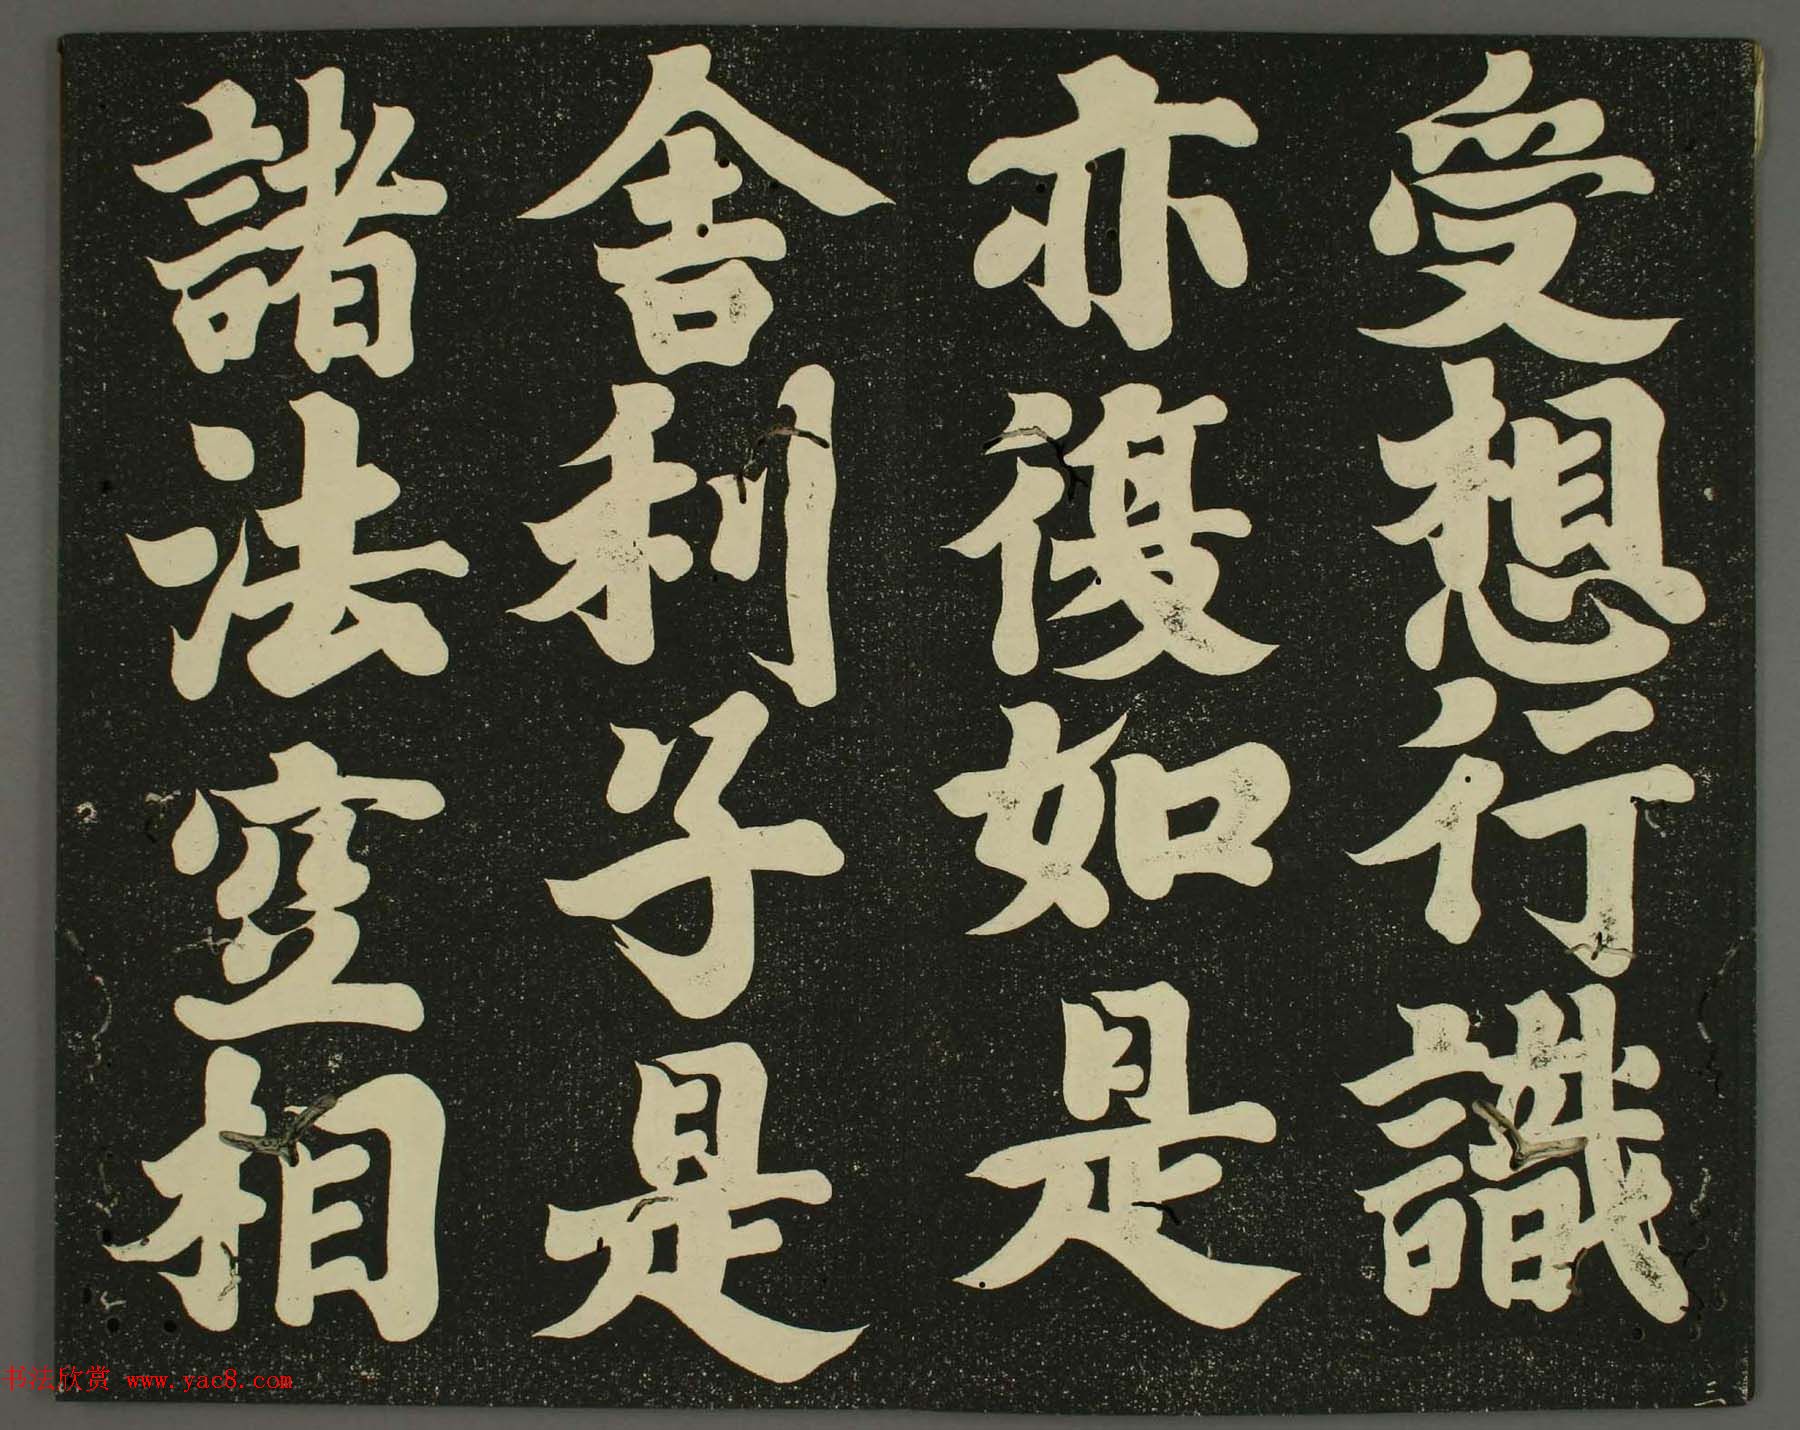 受想行識
亦復如是
舍利子是
諸法空相
书法欣赏 www.yac8.com